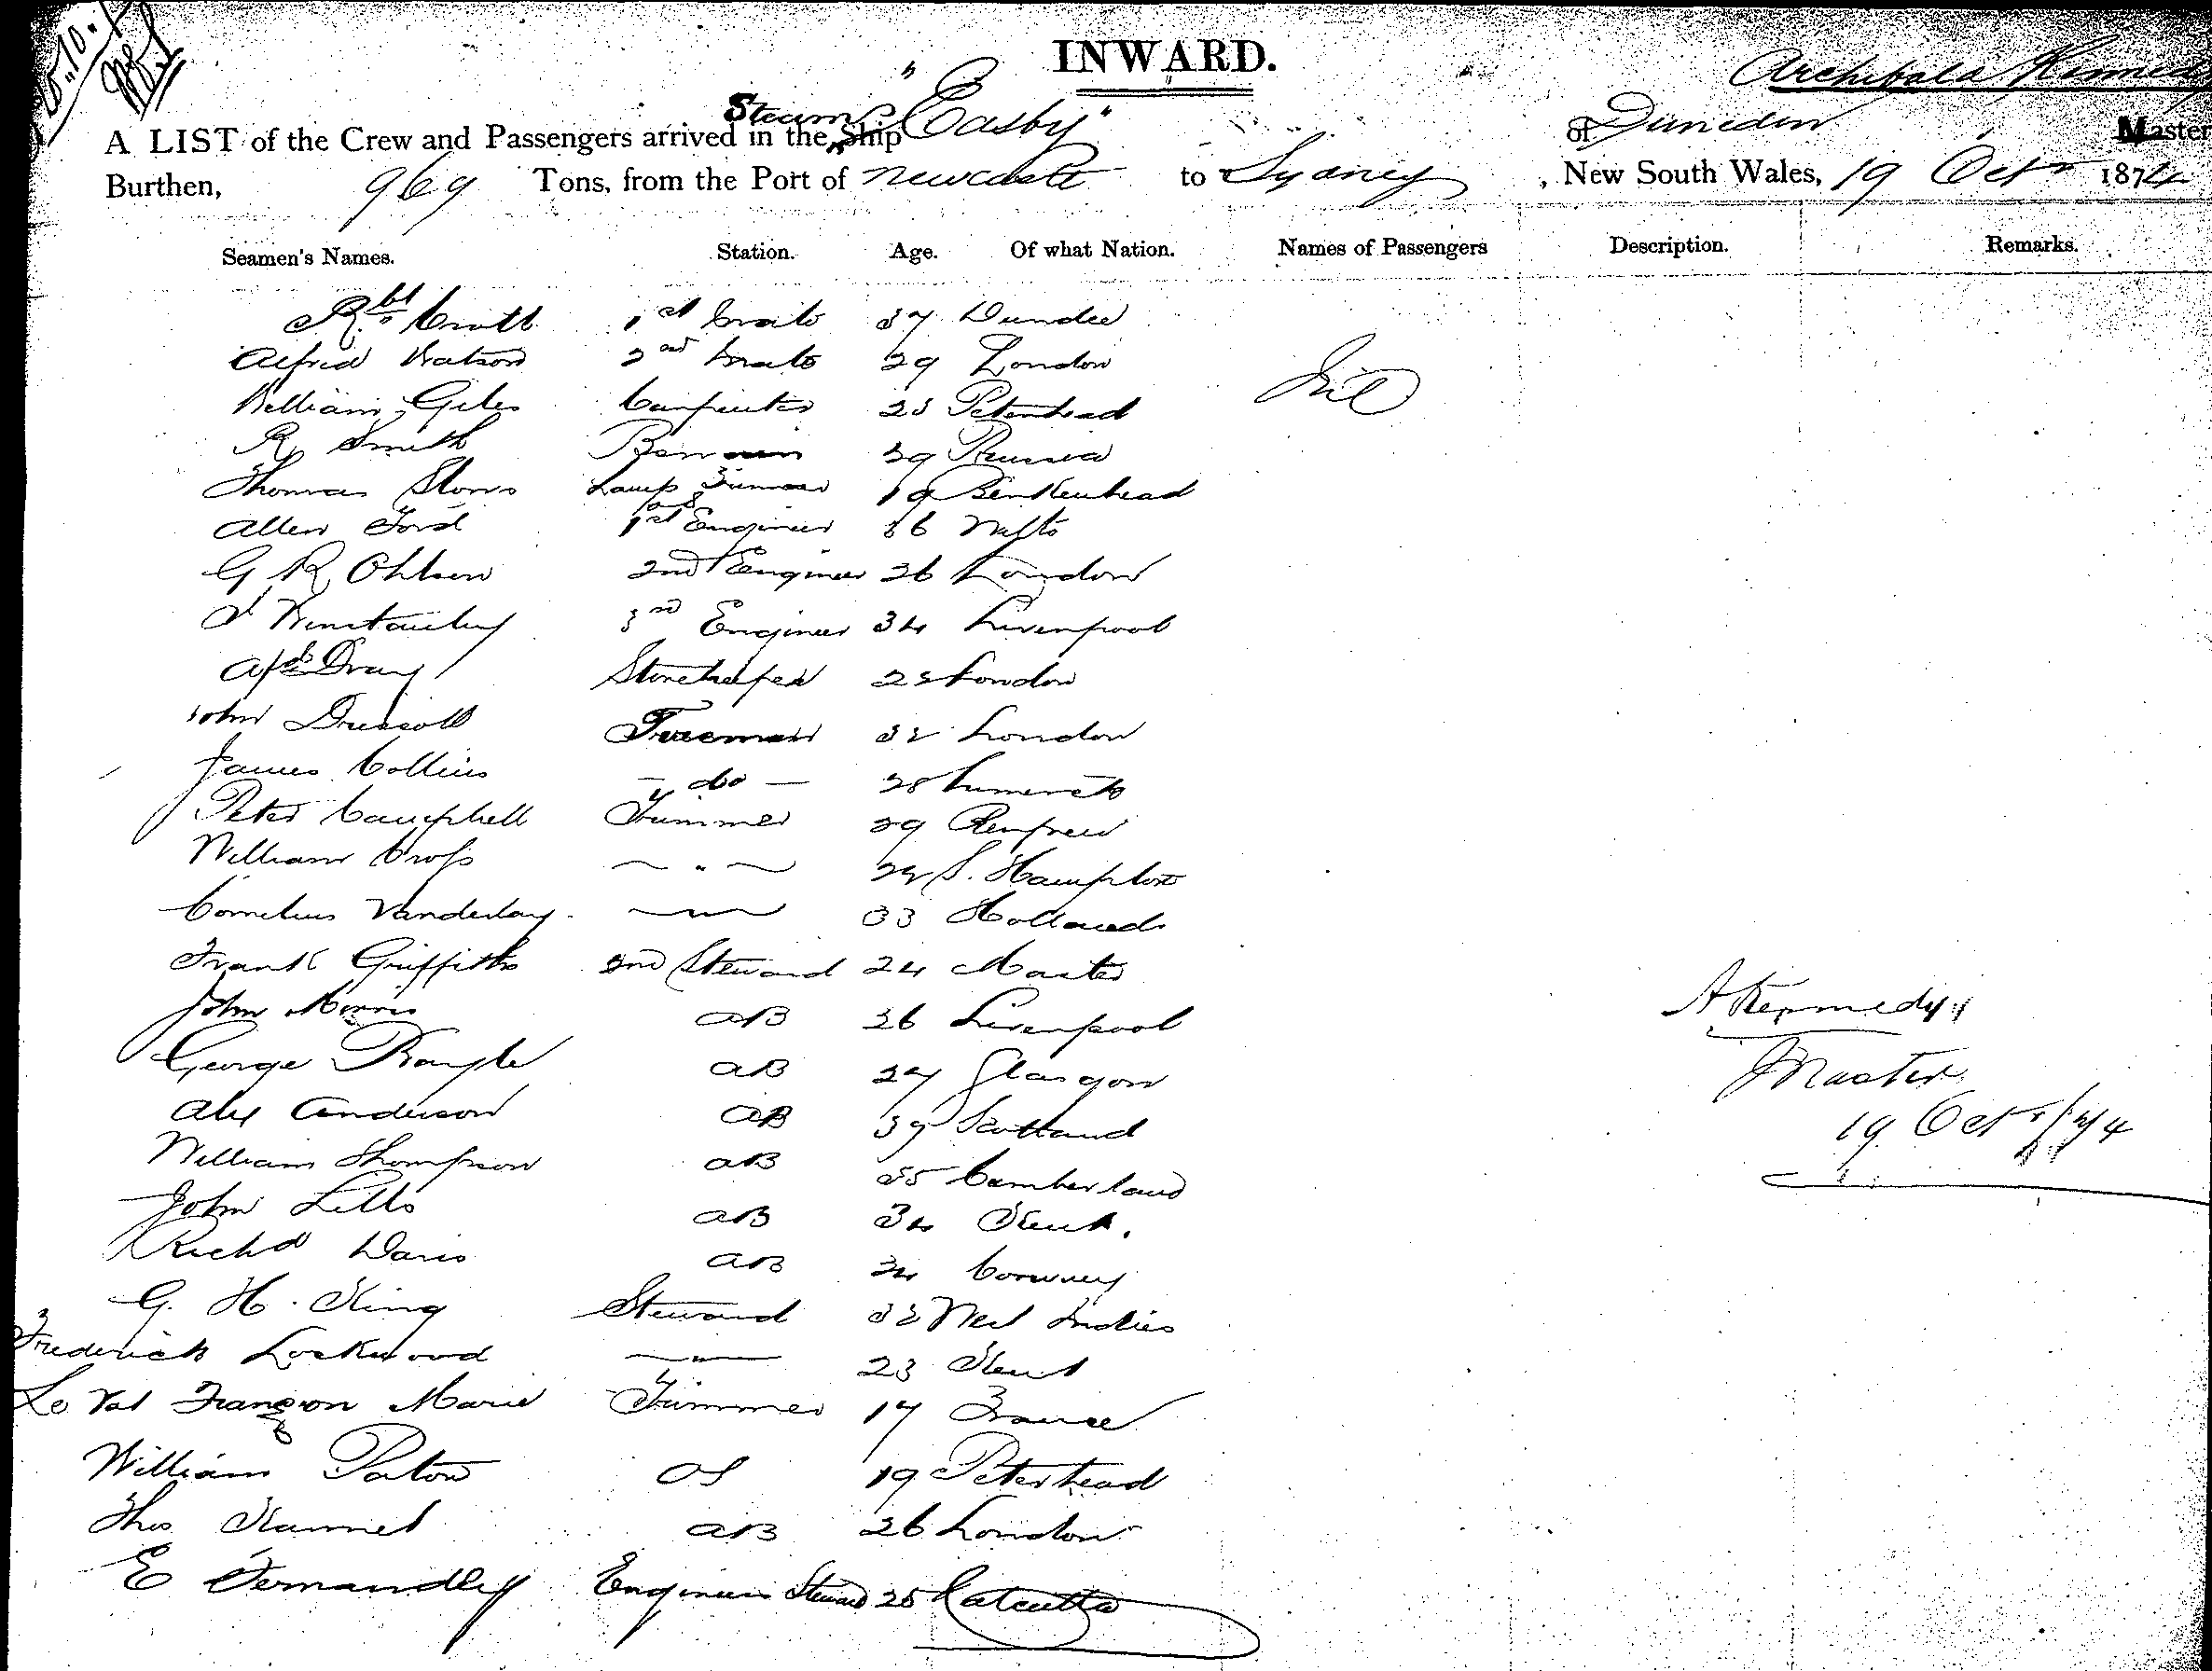 INWARD.
Archibald Kennedy
A LIST of the Crew and Passengers arrived in the Steam Ship "Easby" of Dunedin Master
Burthen, 969 Tons, from the Port of Newcastle to Sydney, New South Wales, 19 Oct 1874
Seamen's Names. Station. Age. Of what Nation. Names of Passengers Description. Remarks.
Rbt 1st Mate 37 Dundee
Alfred Watson 2nd Mate 29 London Nil
William Giles Carpenter 23 Peterhead
R Smith 39 Russia
Thomas Lamp Trimmer 19 Birkenhead
Allen Ford 1st Engineer 36
G R Ohlson 2nd Engineer 26 London
Winstanley 3rd Engineer 34 Liverpool
Dray Storekeeper 28 London
John Driscoll Fireman 32 London
James Collins - do - 28 Limerick
Peter Campbell Trimmer 29 Renfrew
William Cross " S. Hampton
Cornelius Vanderlay " 33 Holland
Frank Griffiths 2nd Steward 24
John Morris AB 26 Liverpool
George AB 27 Glasgow
Alex Anderson AB 39 Scotland
William Thompson AB 35 Cumberland
John AB 34 Kent.
Richd Davis AB 34 Conway
G. H. King Steward 32 West Indies
Frederick Lockwood " 23 Kent
Le Françon Marie Trimmer 17 France
William Paton OS 19 Peterhead
Thos AB 26 London
E Engineers Steward 25 Calcutta
A Kennedy
Master
19 Oct /74